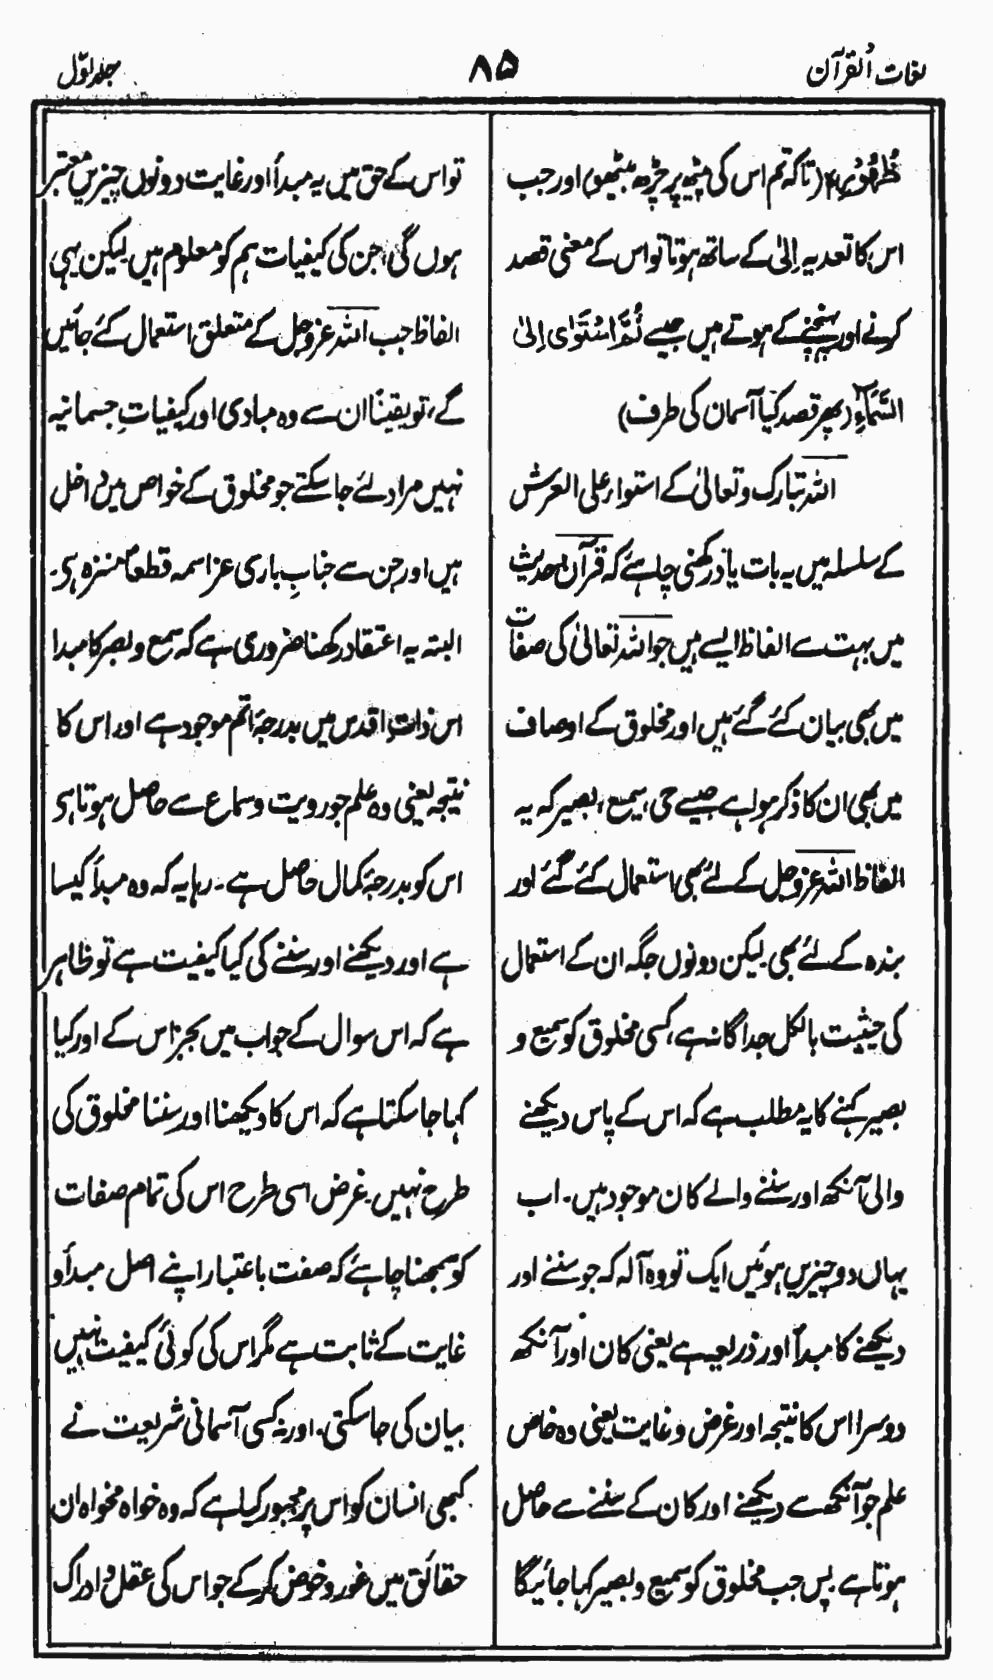 لغات القرآن
۸۵
جلد اوّل
ظُهُوْرِهٖ (تاکہ تم اس کی پیٹھ پر چڑھ بیٹھو) اور جب
اس کا تعدیہ اِلیٰ کے ساتھ ہوتا تو اس کے معنی قصد
کرنے اور پہنچنے کے ہوتے ہیں جیسے ثُمَّ اسْتَوٰی اِلَی
السَّمَآءِ (پھر قصد کیا آسمان کی طرف)
اللہ تبارک و تعالیٰ کے استواء علی العرش
کے سلسلہ میں یہ بات یاد رکھنی چاہئے کہ قرآن و حدیث
میں بہت سے الفاظ ایسے ہیں جو اللہ تعالیٰ کی صفات
میں بھی بیان کئے گئے ہیں اور مخلوق کے اوصاف
میں بھی ان کا ذکر ہوا ہے جیسے حی، سمیع، بصیر کہ یہ
الفاظ اللہ عزوجل کے لئے بھی استعمال کئے گئے اور
بندہ کے لئے بھی۔ لیکن دونوں جگہ ان کے استعمال
کی حیثیت بالکل جداگانہ ہے، کسی مخلوق کو سمیع و
بصیر کہنے کا یہ مطلب ہے کہ اس کے پاس دیکھنے
والی آنکھ اور سننے والے کان موجود ہیں۔ اب
یہاں دو چیزیں ہوئیں ایک تو وہ آلہ کہ جو سننے اور
دیکھنے کا مبدأ اور ذریعہ ہے یعنی کان اور آنکھ
دوسرا اس کا نتیجہ اور غرض و غایت یعنی وہ خاص
علم جو آنکھ سے دیکھنے اور کان کے سننے سے حاصل
ہوتا ہے۔ پس جب مخلوق کو سمیع و بصیر کہا جائیگا
تو اس کے حق میں یہ مبدأ اور غایت دونوں چیزیں معتبر
ہوں گی، جن کی کیفیات ہم کو معلوم ہیں۔ لیکن یہی
الفاظ جب اللہ عزوجل کے متعلق استعمال کئے جائیں
گے، تو یقیناً ان سے وہ مبادی اور کیفیاتِ جسمانیہ
نہیں مراد لئے جا سکتے جو مخلوق کے خواص میں داخل
ہیں اور جن سے جنابِ باری عز اسمہ قطعاً منزہ ہی۔
البتہ یہ اعتقاد رکھنا ضروری ہے کہ سمع و بصر کا مبدا
اس ذاتِ اقدس میں بدرجۂ اتم موجود ہے اور اس کا
نتیجہ یعنی وہ علم جو رویت و سماع سے حاصل ہوتا ہی
اس کو بدرجۂ کمال حاصل ہے۔ رہا یہ کہ وہ مبدأ کیسا
ہے اور دیکھنے اور سننے کی کیا کیفیت ہے تو ظاہر
ہے کہ اس سوال کے جواب میں بجز اس کے اور کیا
کہا جا سکتا ہے کہ اس کا دیکھنا اور سننا مخلوق کی
طرح نہیں۔ غرض اسی طرح اس کی تمام صفات
کو سمجھنا چاہئے کہ صفت باعتبار اپنے اصل مبدأ و
غایت کے ثابت ہے مگر اس کی کوئی کیفیت نہیں
بیان کی جا سکتی۔ اور نہ کسی آسمانی شریعت نے
کبھی انسان کو اس پر مجبور کیا ہے کہ وہ خواہ مخواہ ان
حقائق میں غور و خوض کر کے جو اس کی عقل و ادراک